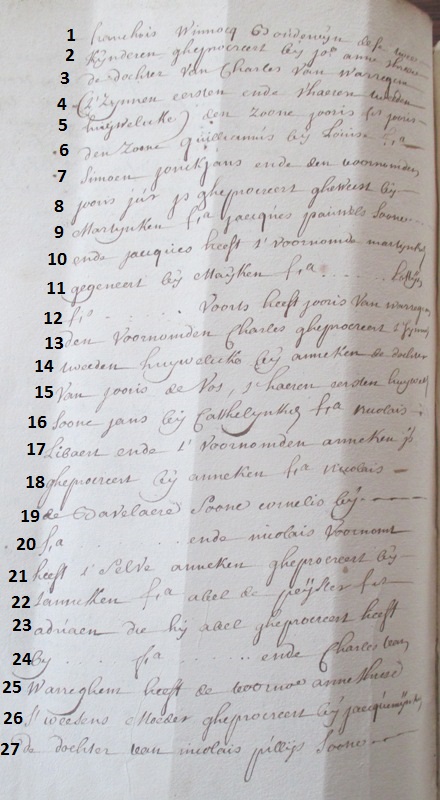 1 franchois Winnocq Boudewijn dese twee
2 Kijnderen gheprocreert bij jo.e anne
3 de dochter van Charles van Warregem
4 (t'zijnnen eersten ende t'haeren tweeden
5 huijwelicke) den Zoone jooris fs jooris
6 den Zoone guilliamus bij Louise fia
7 Simoen jonckjans ende den voornomden
8 jooris js gheprocreert gheweest bij
9 Martijnken fia jacques pauwels Soone
10 ende jacques heeft t'voornomde martijnken
11 gegenert bij Maijken fia . . . . .
12 fs . . . . . Voorts heeft jooris van warregem
13 den Voornomden Charles gheprocreert t'sijnen
14 tweeden huijwelicke bij anneken de dochter
15 Van jooris de Vos, t'haeren eersten huijwel
16 Soone jans bij Cathelijnken fia nicolais
17 Libaert ende t'voornomden anneken js
18 gheprocreert bij anneken fia nicolais
19 de Bavelaere Soone cornelis bij
20 fia . . . . . ende nicolais Voornomt
21 heeft t'selve anneken gheprocreert bij
22 Tanneken fia abel de peijster fs
23 adriaen die hij abel gheprocreert heeft
24 bij . . . . fia . . . . . ende Charles van
25 Warreghem heeft de voorno.e anne
26 s'weesens Moeder gheprocreert bij jacquemijntken
27 de dochter van nicolais pillijs Soone